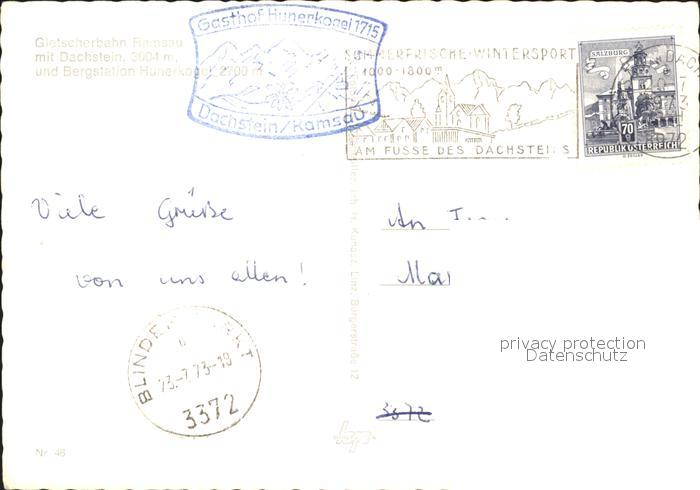 Gletscherbahn Ramsau
mit Dachstein, 3004 m,
und Bergstation Hunerkogel, 2700 m
Gasthof Hunerkogel 1715
Dachstein/Ramsau
SOMMERFRISCHE-WINTERSPORT
1000-1800m
AM FUSSE DES DACHSTEINS
SALZBURG
70
REPUBLIK ÖSTERREICH
Viele Grüße
von uns allen!
An T....
Mai
BLINDENMARKT
23.-7.73-18
3372
Linz, Bürgerstraße 12
privacy protection
Datenschutz
3672
Nr. 46